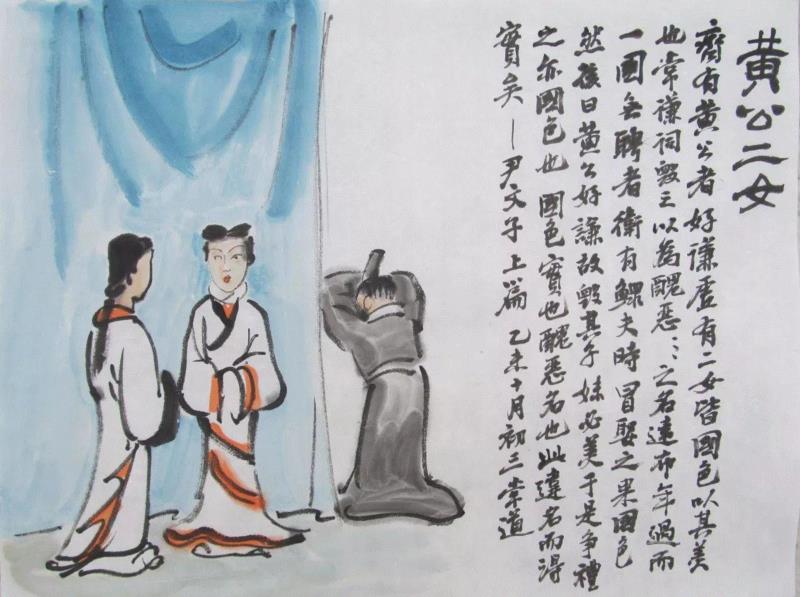 黄公二女
齊有黃公者好謙虛有二女皆國色以其美
也常謙詞毀之以為醜惡醜惡之名遠布年過而
一國無聘者衛有鰥夫時冒娶之果國色
然後曰黃公好謙故毀其子妹必美于是爭禮
之亦國色也國色實也醜惡名也此違名而得
實矣—尹文子上篇 乙未十月初三崇道